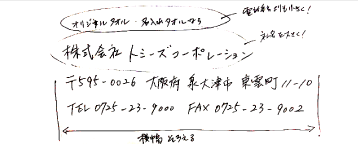 オリジナルタオル・名入れタオルなら
株式会社トミーズコーポレーション
社名を大きく!
〒595-0026 大阪府泉大津市東雲町11-10
TEL 0725-23-9000 FAX 0725-23-9002
横幅そろえる